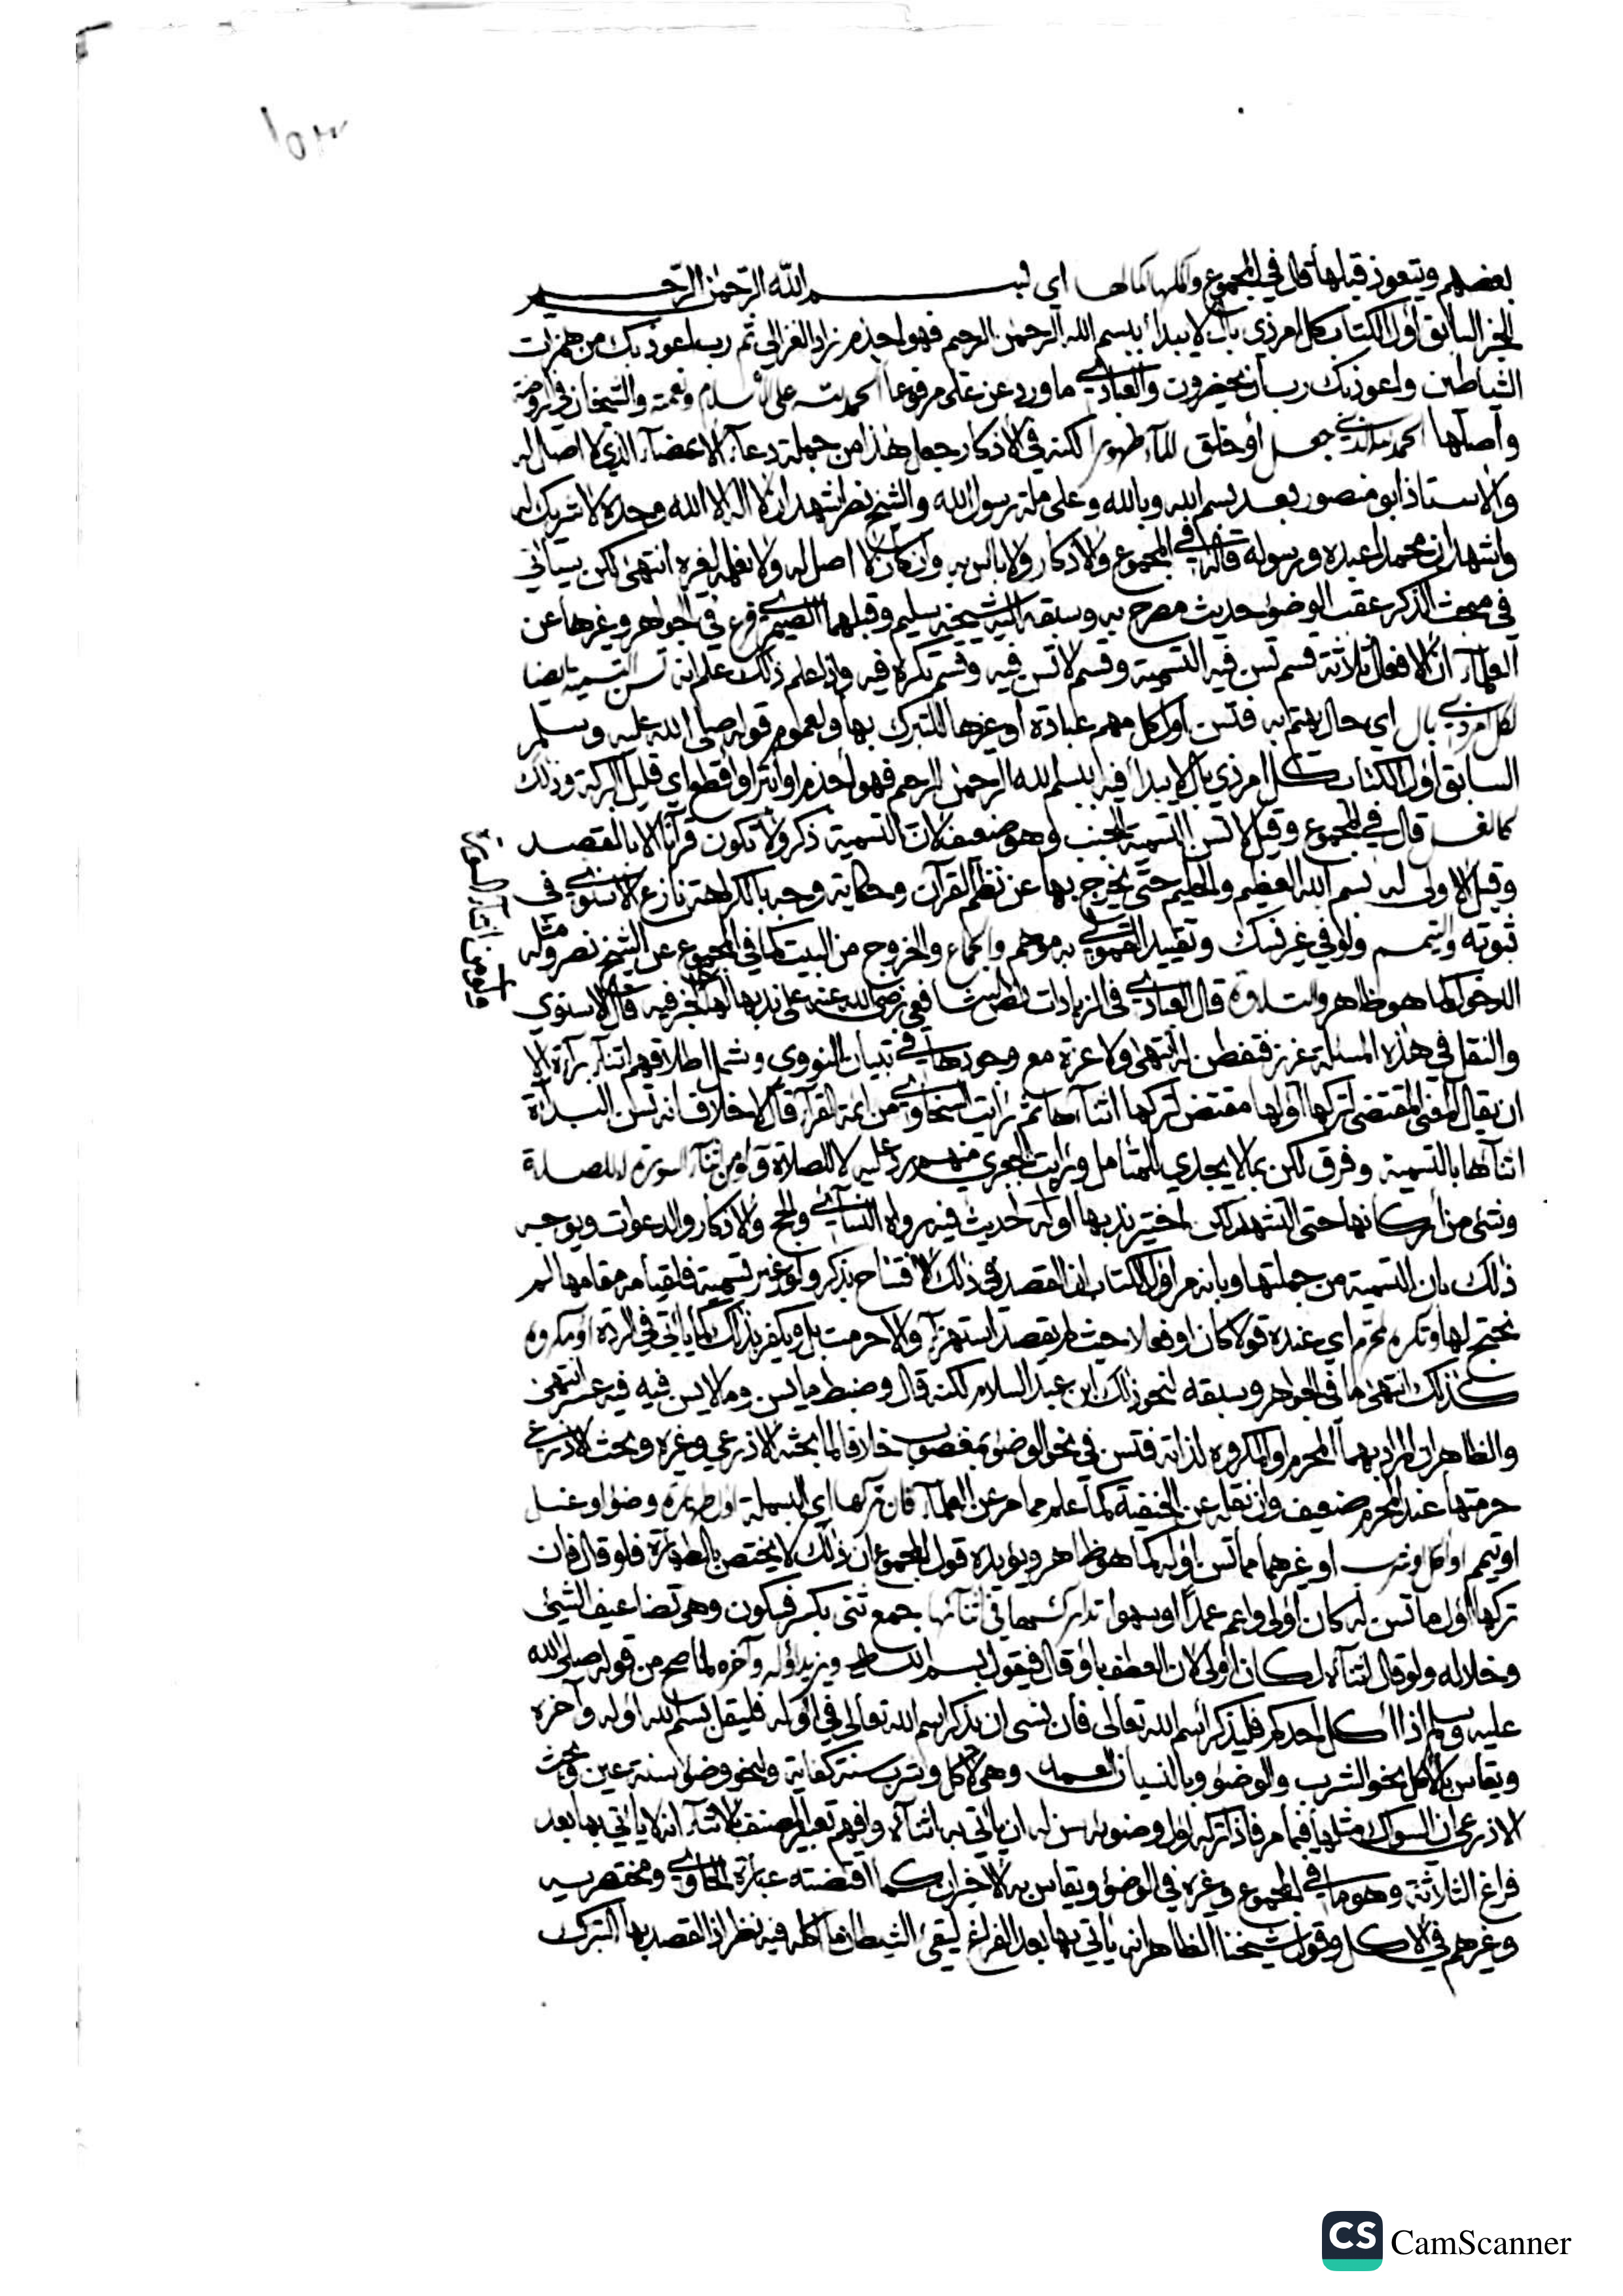 ١٥٣
بعضهم ويتعوذ قبلها قال في المجموع وأكملها كمالها أي بسم الله الرحمن الرحيم
الخبر السابق أول الكتاب كل أمر ذي بال لا يبدأ ببسم الله الرحمن الرحيم فهو أجذم زاد الغزالي ثم رب أعوذ بك من همزات
الشياطين وأعوذ بك رب أن يحضرون والعبادي ما ورد عن علي مرفوعا الحمد لله على الإسلام ونعمته والشيخان في الروضة
وأصلها الحمد لله الذي جعل أو خلق الماء طهورا لكنه في الأذكار جعل هذا من جملة دعاء الأعضاء الذي لا أصل له
والأستاذ أبو منصور بعد بسم الله وبالله وعلى ملة رسول الله والشيخ نصر أشهد أن لا إله إلا الله وحده لا شريك له
وأشهد أن محمدا عبده ورسوله قال في المجموع والأذكار ولا بأس به وإن كان لا أصل له ولا نعلمه لغيره انتهى لكن سيأتي
في مبحث الذكر عقب الوضوء حديث مصرح به وسبقه إليه شيخه سليم وقبلهما الصيمري فرع في الجواهر وغيرها عن
العلماء أن الأفعال ثلاثة قسم تسن فيه التسمية وقسم لا تسن فيه وقسم تكره فيه وإذا علم ذلك علم أنه تسن التسمية أيضا
لكل أمر ذي بال أي حال يهتم به فتسن أول كل مهم عبادة أو غيرها للتبرك بها ولعموم قوله صلى الله عليه وسلم
السابق أول الكتاب كل أمر ذي بال لا يبدأ فيه ببسم الله الرحمن الرحيم فهو أجذم أو أبتر أو أقطع أي قليل البركة وذلك
كالغسل قال في المجموع وقيل لا تسن التسمية للجنب وهو ضعيف لأن التسمية ذكر ولا تكون قرآنا إلا بالقصد
وقيل الأولى له بسم الله العظيم والحليم حتى يخرج بها عن نظم القرآن وحكاية وجه بالكراهة نازع الإسنوي في
ثبوته والتيمم ولو في غير نسك وتقييد القمولي به موهم والجماع والخروج من البيت كما في المجموع عن الشيخ نصر ومثله
الدخول كما هو ظاهر والتلاوة قال العبادي في الزيادات نص الشافعي رضي الله عنه على ندبها لها لخبر فيه قال الإسنوي
والنقل في هذه المسئلة عزيز فتفطن له انتهى ولا عزة مع وجودها في تبيان النووي وشمل إطلاقهم أثناء براءة إلا
أن يقال المعنى المقتضي لتركها أولها مقتض لتركها أثناءها ثم رأيت السخاوي من أئمة القراء قال لا خلاف أنه تسن البداءة
أثناءها بالتسمية وفرق لكن بما لا يجدي للمتأمل ورأيت الجعبري منهم رد عليه لا للصلاة
وشيء من أركانها حتى التشهد لكن اختير ندبها أوله لحديث فيه رواه النسائي والحج والأذكار والدعوات ويوجه
ذلك بأن التسمية من جملتها وبأنه مر أول الكتاب أن القصد في ذلك الافتتاح بذكر ولو غير تسمية فلقيامه مقامها لم
نحتج لها وتكره لمحرم أي عنده قولا كان أو فعلا حيث لم يقصد استهزاء وإلا حرمت بل ويكفر بذلك كما يأتي في الردة أو مكروه
كذلك انتهى ما في الجواهر وسبقه لنحو ذلك ابن عبد السلام لكنه قال وضبط ما يسن وما لا يسن فيه فيه عسر انتهى
والظاهر أن المراد بهما المحرم والمكروه لذاته فتسن في نحو الوضوء بمغصوب خلافا لما بحثه الأذرعي وغيره وبحث الأذرعي
حرمتها عند المحرم ضعيف وإن نقله عن الحنفية كما علم مما مر عن العلماء فإن تركها أي البسملة أول طهارة وضوء أو غسل
أو تيمم أو أكل وشرب أو غيرهما مما تسن أوله كما هو ظاهر ويؤيده قول المجموع أن ذلك لا يختص بالطهارة فلو قال فإن
تركها أول ما تسن له كان أولى وأعم عمدا أو سهوا تداركها في أثنائها جمع ثني بكسر فسكون وهي تضاعيف الشيء
وخلاله ولو قال أثناءه لكان أولى لأن العطف بأو قال فيقول بسم الله ويزيد أوله وآخره لما صح من قوله صلى الله
عليه وسلم إذا أكل أحدكم فليذكر اسم الله تعالى فإن نسي أن يذكر اسم الله تعالى في أوله فليقل بسم الله أوله وآخره
ويقاس بالأكل نحو الشرب والوضوء وبالنسيان العمد وهي لأكل وشرب سنة كفاية ولنحو وضوء سنة عين وبحث
الأذرعي أن السواك مثلها فيما مر فإذا تركه أول وضوئه سن له أن يأتي به أثناءه وأفهم تعبير المصنف بالأثناء أنه لا يأتي بها بعد
فراغ الثلاثة وهو ما في المجموع وغيره في الوضوء ويقاس به الأخيران كما اقتضته عبارة الحاوي ومختصريه
وغيرهم في الأكل وقول شيخنا الظاهر أنه يأتي بها بعد الفراغ ليقيء الشيطان ما أكله فيه نظر إذ القصد بها التبرك
CS CamScanner